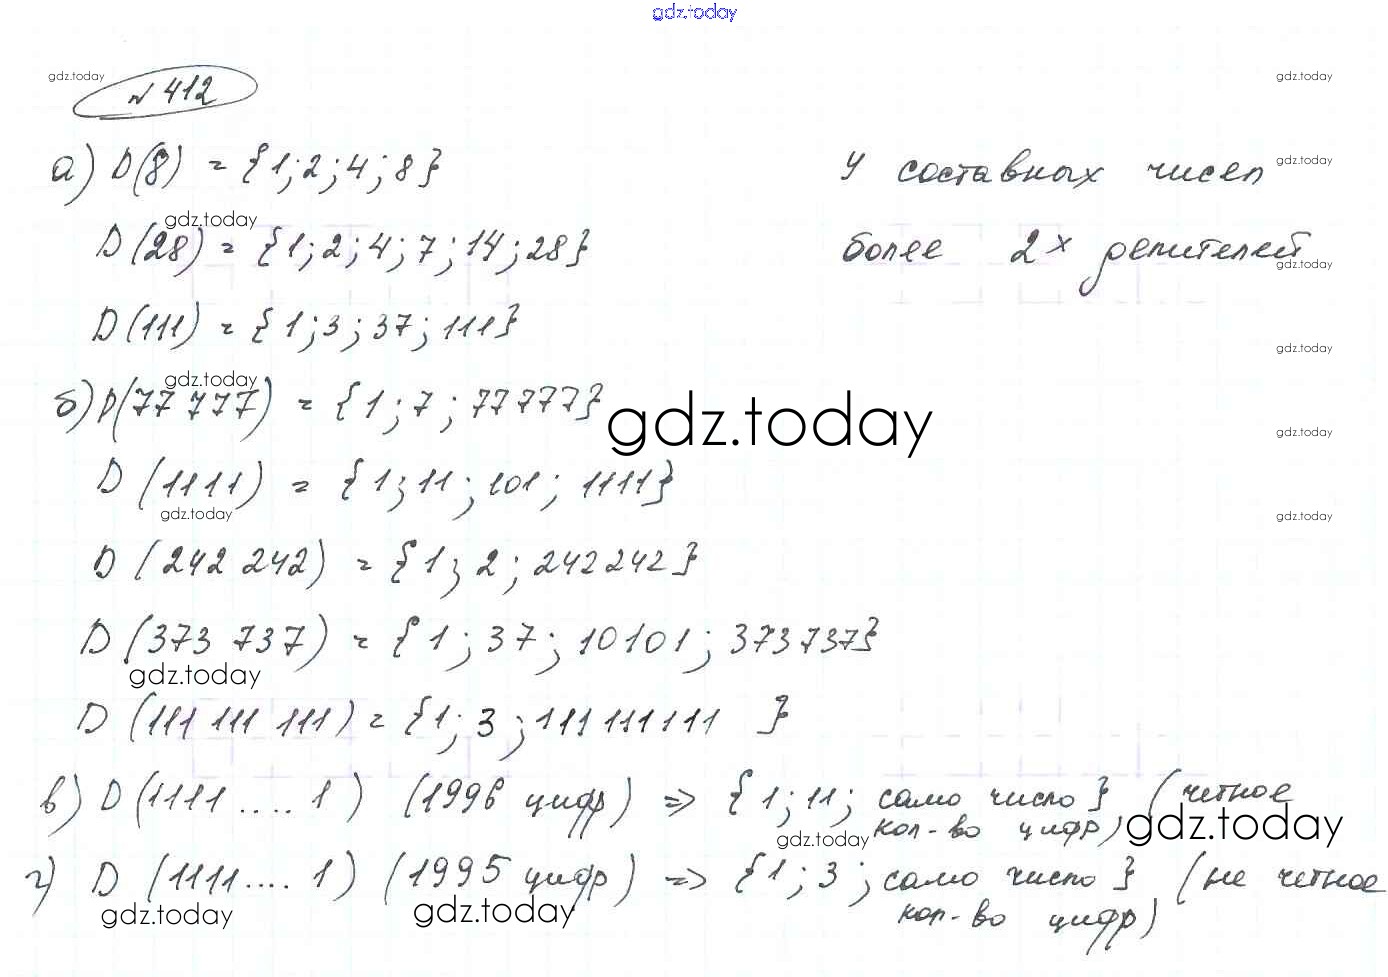 gdz.today
gdz.today
№ 412
gdz.today
а) D(8) = {1; 2; 4; 8}
У составных чисел
gdz.today
gdz.today
D(28) = {1; 2; 4; 7; 14; 28}
более 2х делителей
gdz.today
D(111) = {1; 3; 37; 111}
gdz.today
gdz.today
б) D(77 777) = {1; 7; 77777}
gdz.today
gdz.today
D(1111) = {1; 11; 101; 1111}
gdz.today
gdz.today
D(242 242) = {1; 2; 242242}
D(373 737) = {1; 37; 10101; 373737}
gdz.today
D(111 111 111) = {1; 3; 111111111 }
в) D(1111....1) (1996 цифр) => {1; 11; само число} (четное
кол-во цифр)
gdz.today
gdz.today
г) D(1111....1) (1995 цифр) => {1; 3; само число} (не четное
кол-во цифр)
gdz.today
gdz.today